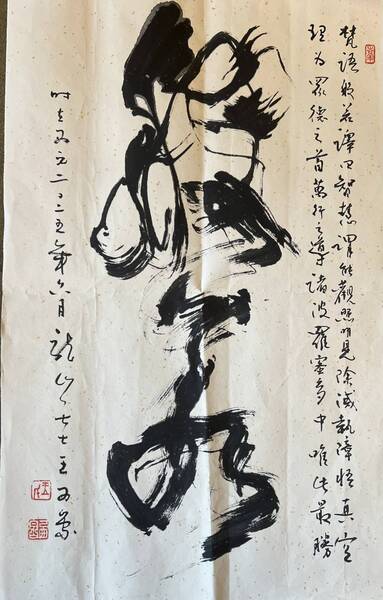 梵語般若譯曰智慧謂能觀照明見除滅執障悟真空
理为眾德之首萬行之導諸波羅蜜多中唯此最勝
般若
时在西元二〇二五年六月龍山七七王